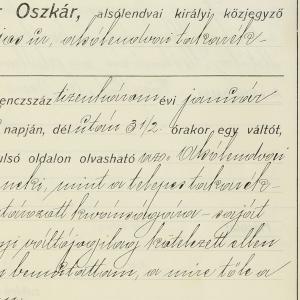 r Oszkár, alsólendvai királyi közjegyző
úr, alsólendvai takarék-
enczszáz tizenhárom évi január
napján, dél után 3 1/2 órakor egy váltót,
ulsó oldalon olvasható az Alsólendvai
neki, mint a telepes takarék-
tározott kívánságára - saját
gi váltójogilag kötelezett ellen
bemutattam, a mire tőle a